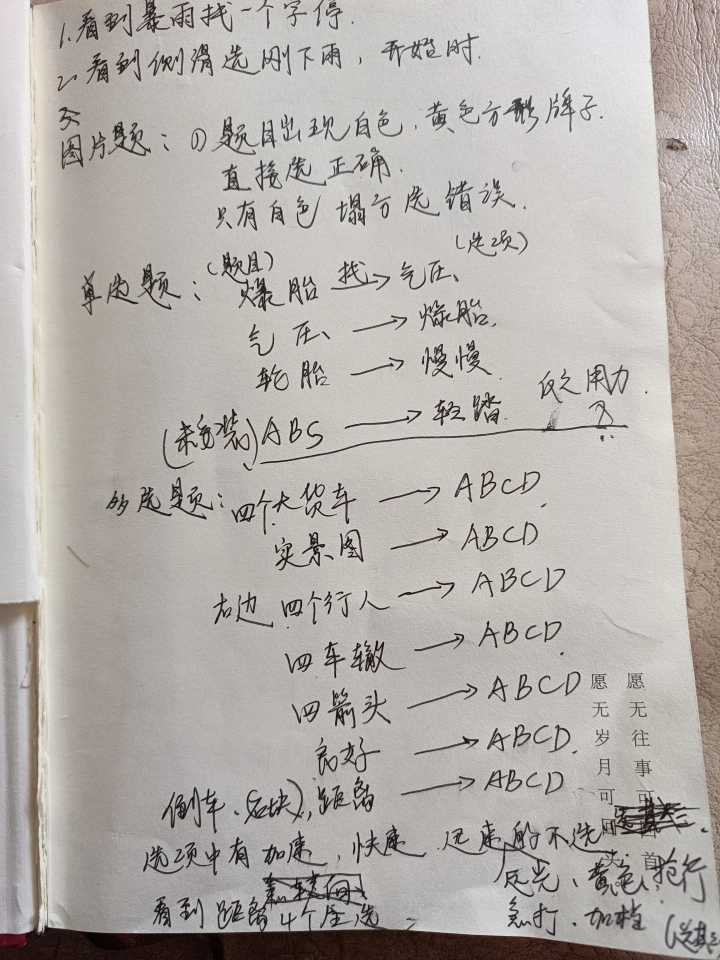 1.看到暴雨找一个字停.
2、看到侧滑选刚下雨，开始时.
3、
图片题：① 题目出现白色、黄色方形牌子.
直接选正确.
只有白色 塌方选错误.
单选题：(题目) (选项)
爆胎 找→ 气压、
气压、 → 爆胎.
轮胎 → 慢慢.
(未安装)ABS → 轻踏. 用力.
多选题：四个大货车 → ABCD.
实景图 → ABCD
右边 四个行人 → ABCD
四车辙 → ABCD.
四箭头 → ABCD
良好 → ABCD.
倒车、(石块)，距离 → ABCD
选项中有加速，快速 迅速的不选
远光、黄色、抢行
看到距离4个全选、 急打、加档 (选其
愿无岁月可回头
愿无往事可 首